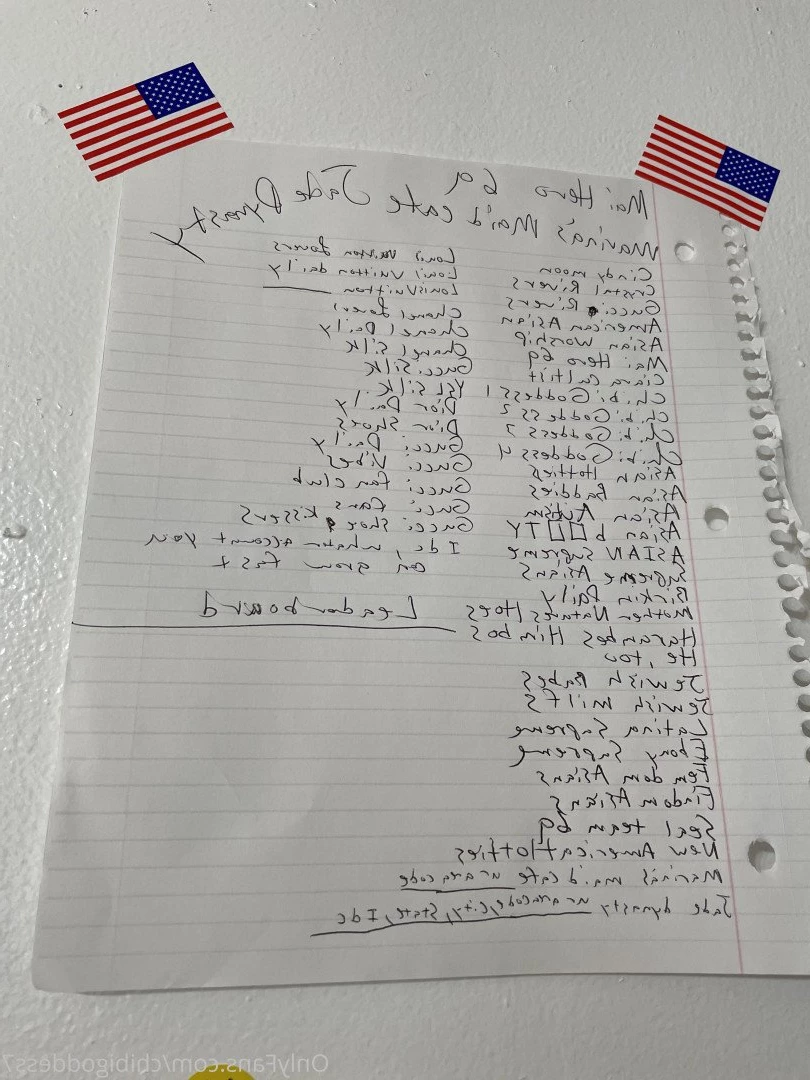 Mai Hero 69
Marina's Maid cafe Jade Dynasty
Cindy moon
Crystal Rivers
Gucci Rivers
American Asian
Asian Worship
Mai Hero 69
Ciara
Chibi Goddess 1
Chibi Goddess 2
Chibi Goddess 3
Chibi Goddess 4
Asian Hotties
Asian Baddies
Asian Autism
Asian b□□TY
ASIAN Supreme
Supreme Asians
Birkin Daily
Mother Natures Hoes
Harambes Himbos
He, too
Jewish Babes
Jewish milfs
Latina Supreme
Ebony Supreme
Fem dom Asians
Findom Asians
Seal team 69
New American Hotties
Marina's maid cafe ur area code
Jade dynasty ur area code, city, state, Idc
Loui Vuitton Lovers
Loui Vuitton daily
Louis Vuitton
Chanel Lovers
Chanel Daily
Chanel Silk
Gucci Silk
YSL Silk
Dior Daily
Dior Shoes
Gucci Daily
Gucci Vibes
Gucci fan club
Gucci fans
Gucci shoe kissers
Idc, whatever account you
can grow fast
Leaderboard
OnlyFans.com/chibigoddess7